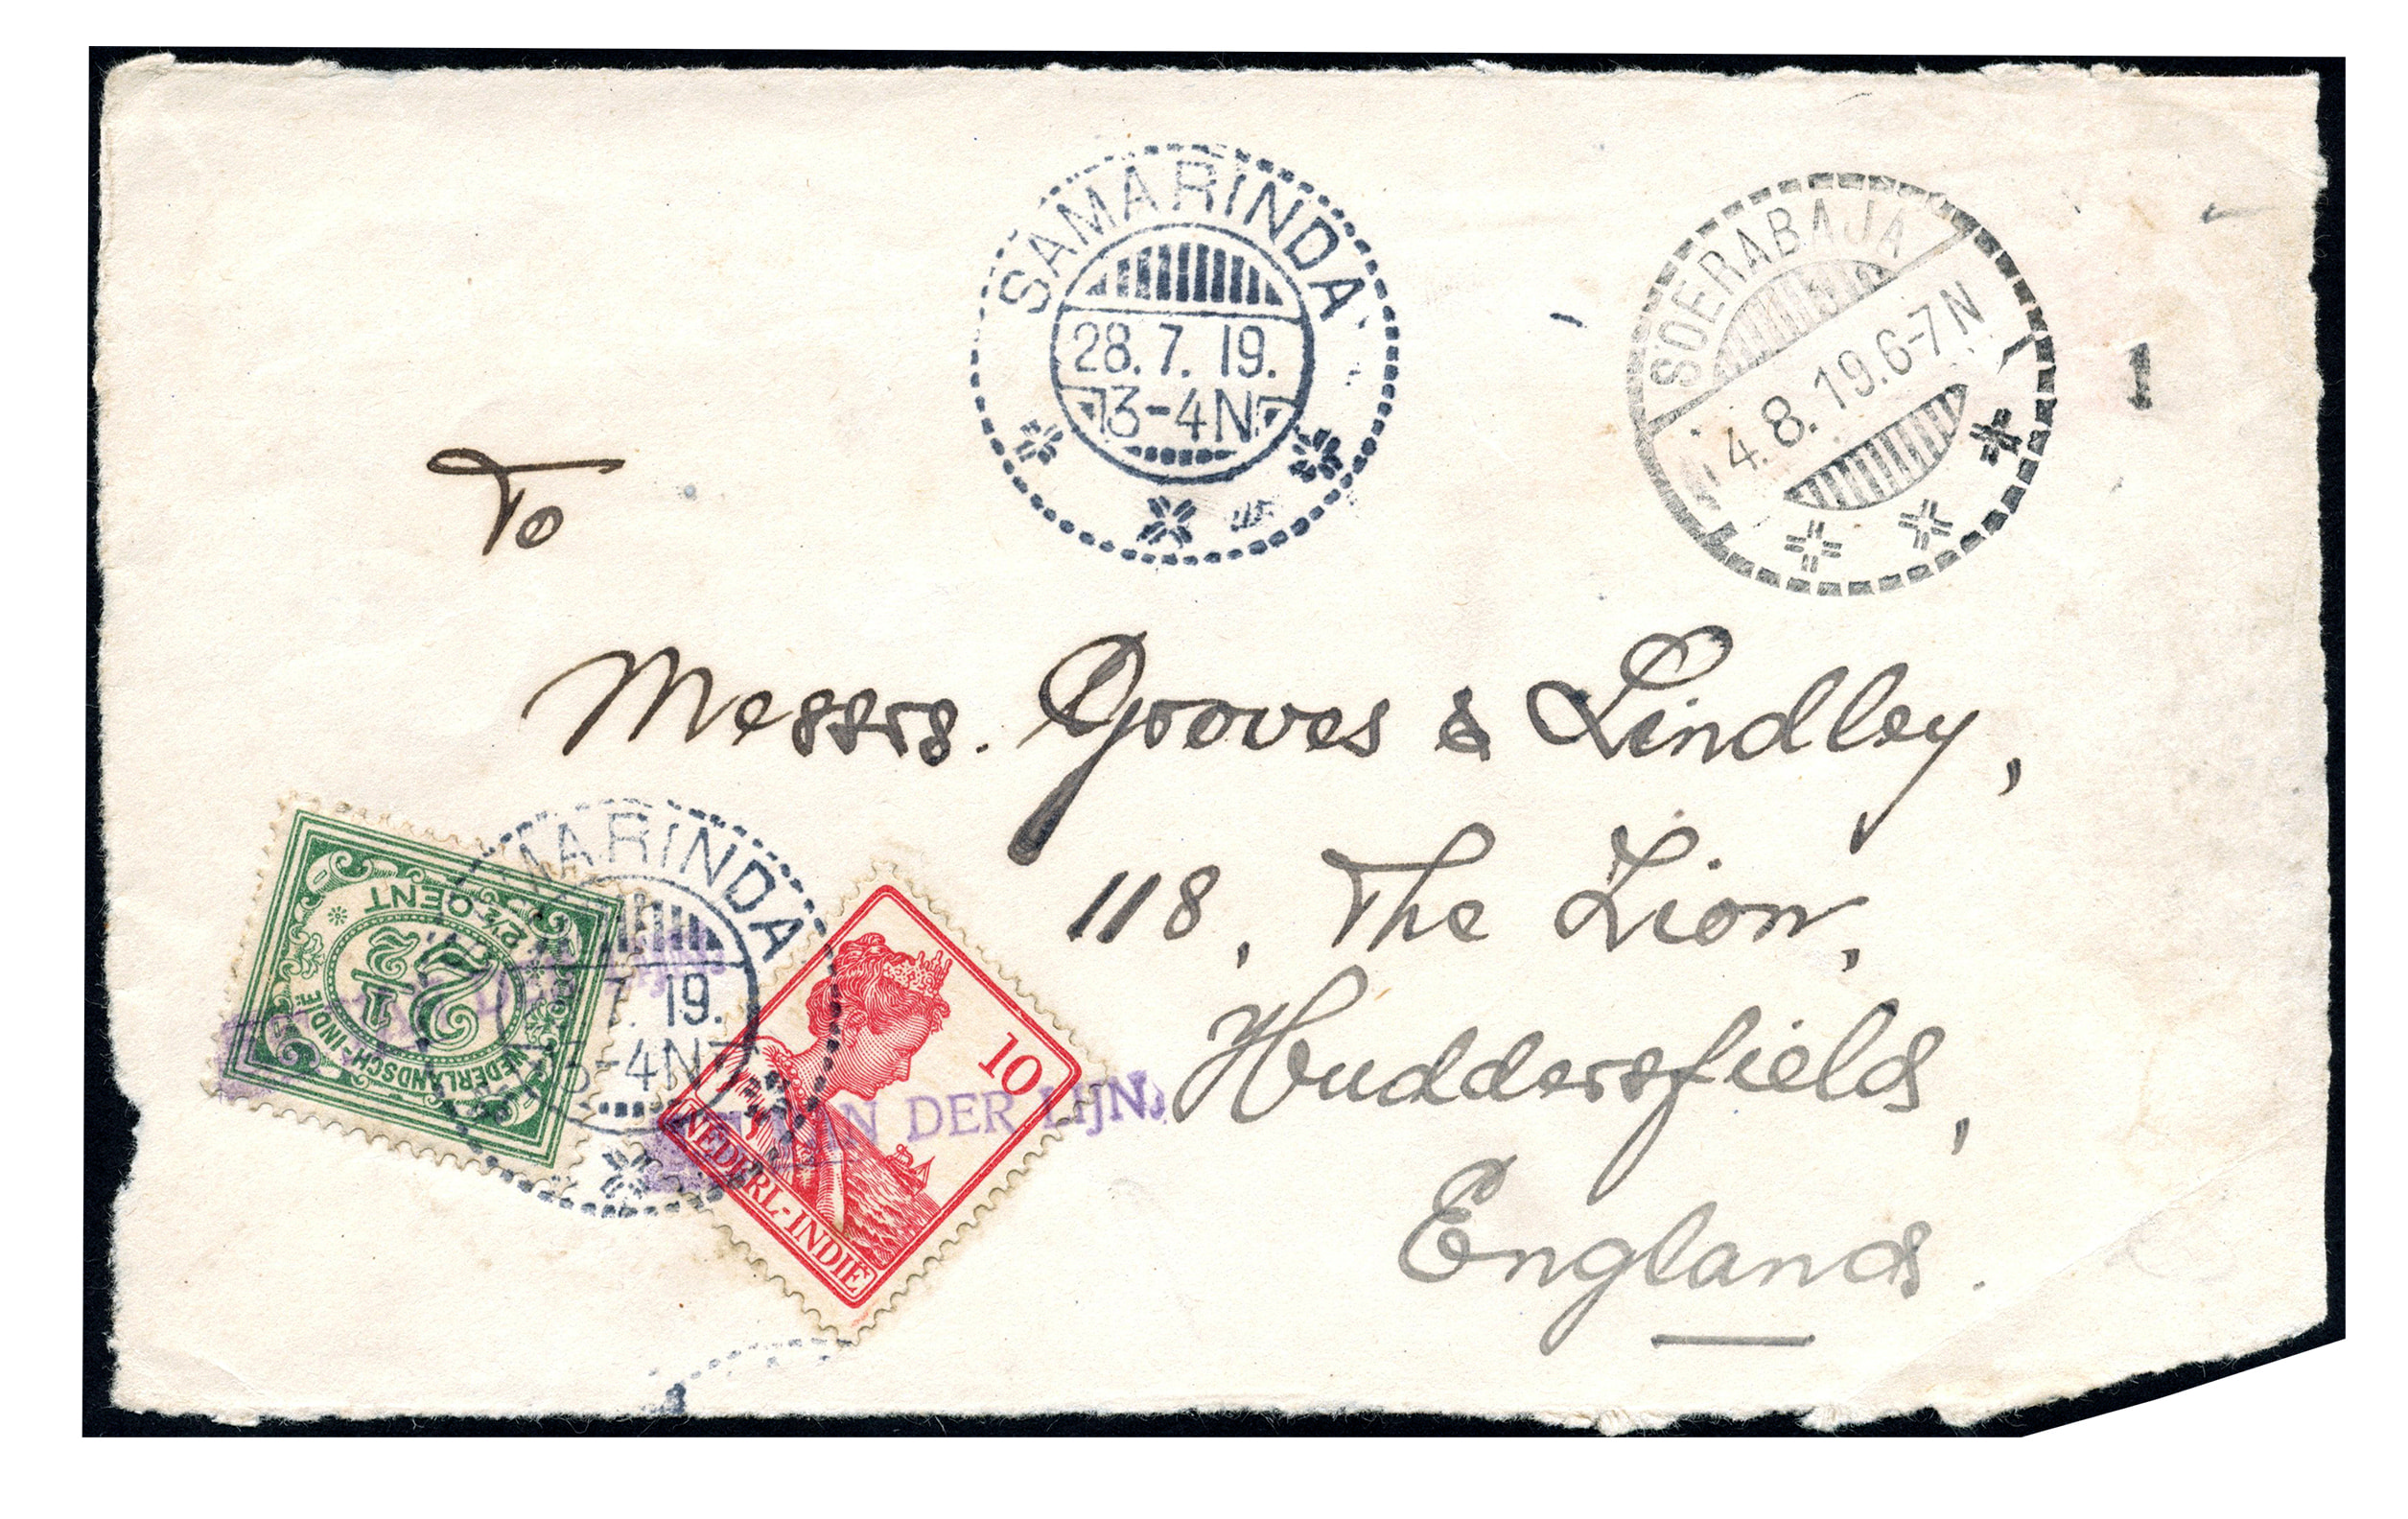 SAMARINDA
28.7.19.
3-4N
SOERABAJA
4.8.19.6-7N
1
To
Messrs. Groves & Lindley,
118, The Lion,
Huddersfield,
England.
2½ CENT
2 1/2
NEDERLANDSCH-INDIË
MARINDA
7.19.
3-4N
10
VAN DER LIJN.
NEDERL.-INDIË